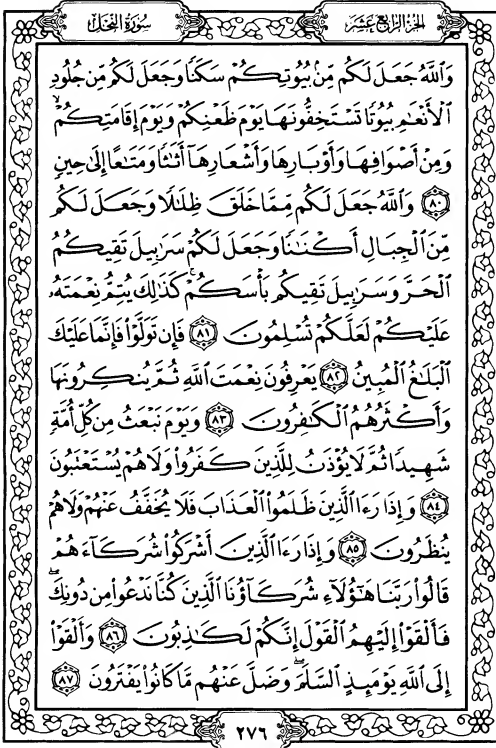 الجزء الرابع عشر
سورة النحل
وَٱللَّهُ جَعَلَ لَكُم مِّنۢ بُيُوتِكُمْ سَكَنًا وَجَعَلَ لَكُم مِّن جُلُودِ
ٱلْأَنْعَٰمِ بُيُوتًا تَسْتَخِفُّونَهَا يَوْمَ ظَعْنِكُمْ وَيَوْمَ إِقَامَتِكُمْ ۙ
وَمِنْ أَصْوَافِهَا وَأَوْبَارِهَا وَأَشْعَارِهَآ أَثَٰثًا وَمَتَٰعًا إِلَىٰ حِينٍ
﴿٨٠﴾ وَٱللَّهُ جَعَلَ لَكُم مِّمَّا خَلَقَ ظِلَٰلًا وَجَعَلَ لَكُم
مِّنَ ٱلْجِبَالِ أَكْنَٰنًا وَجَعَلَ لَكُمْ سَرَٰبِيلَ تَقِيكُمُ
ٱلْحَرَّ وَسَرَٰبِيلَ تَقِيكُم بَأْسَكُمْ ۚ كَذَٰلِكَ يُتِمُّ نِعْمَتَهُۥ
عَلَيْكُمْ لَعَلَّكُمْ تُسْلِمُونَ ﴿٨١﴾ فَإِن تَوَلَّوْا۟ فَإِنَّمَا عَلَيْكَ
ٱلْبَلَٰغُ ٱلْمُبِينُ ﴿٨٢﴾ يَعْرِفُونَ نِعْمَتَ ٱللَّهِ ثُمَّ يُنكِرُونَهَا
وَأَكْثَرُهُمُ ٱلْكَٰفِرُونَ ﴿٨٣﴾ وَيَوْمَ نَبْعَثُ مِن كُلِّ أُمَّةٍ
شَهِيدًا ثُمَّ لَا يُؤْذَنُ لِلَّذِينَ كَفَرُوا۟ وَلَا هُمْ يُسْتَعْتَبُونَ
﴿٨٤﴾ وَإِذَا رَءَا ٱلَّذِينَ ظَلَمُوا۟ ٱلْعَذَابَ فَلَا يُخَفَّفُ عَنْهُمْ وَلَا هُمْ
يُنظَرُونَ ﴿٨٥﴾ وَإِذَا رَءَا ٱلَّذِينَ أَشْرَكُوا۟ شُرَكَآءَهُمْ
قَالُوا۟ رَبَّنَا هَٰٓؤُلَآءِ شُرَكَآؤُنَا ٱلَّذِينَ كُنَّا نَدْعُوا۟ مِن دُونِكَ ۖ
فَأَلْقَوْا۟ إِلَيْهِمُ ٱلْقَوْلَ إِنَّكُمْ لَكَٰذِبُونَ ﴿٨٦﴾ وَأَلْقَوْا۟
إِلَى ٱللَّهِ يَوْمَئِذٍ ٱلسَّلَمَ ۖ وَضَلَّ عَنْهُم مَّا كَانُوا۟ يَفْتَرُونَ ﴿٨٧﴾
٢٧٦